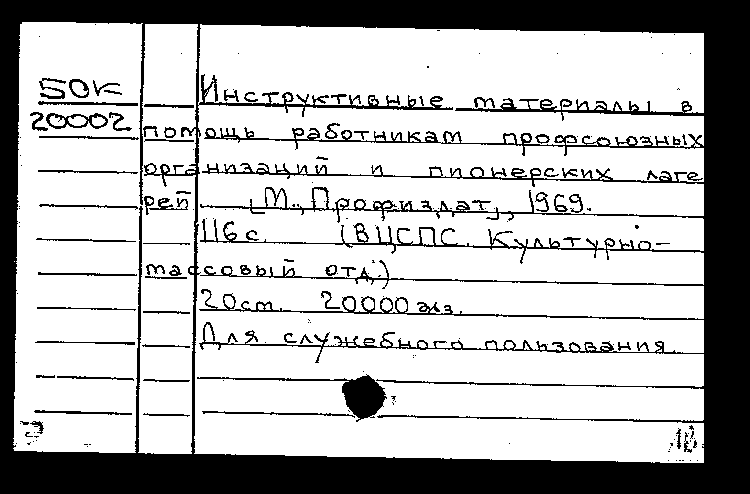 50К Инструктивные материалы в
20002 помощь работникам профсоюзных
организаций и пионерских лаге
рей [М., Профиздат], 1969.
116 с. (ВЦСПС. Культурно-
массовый отд.)
20 см. 20000 экз.
Для служебного пользования.